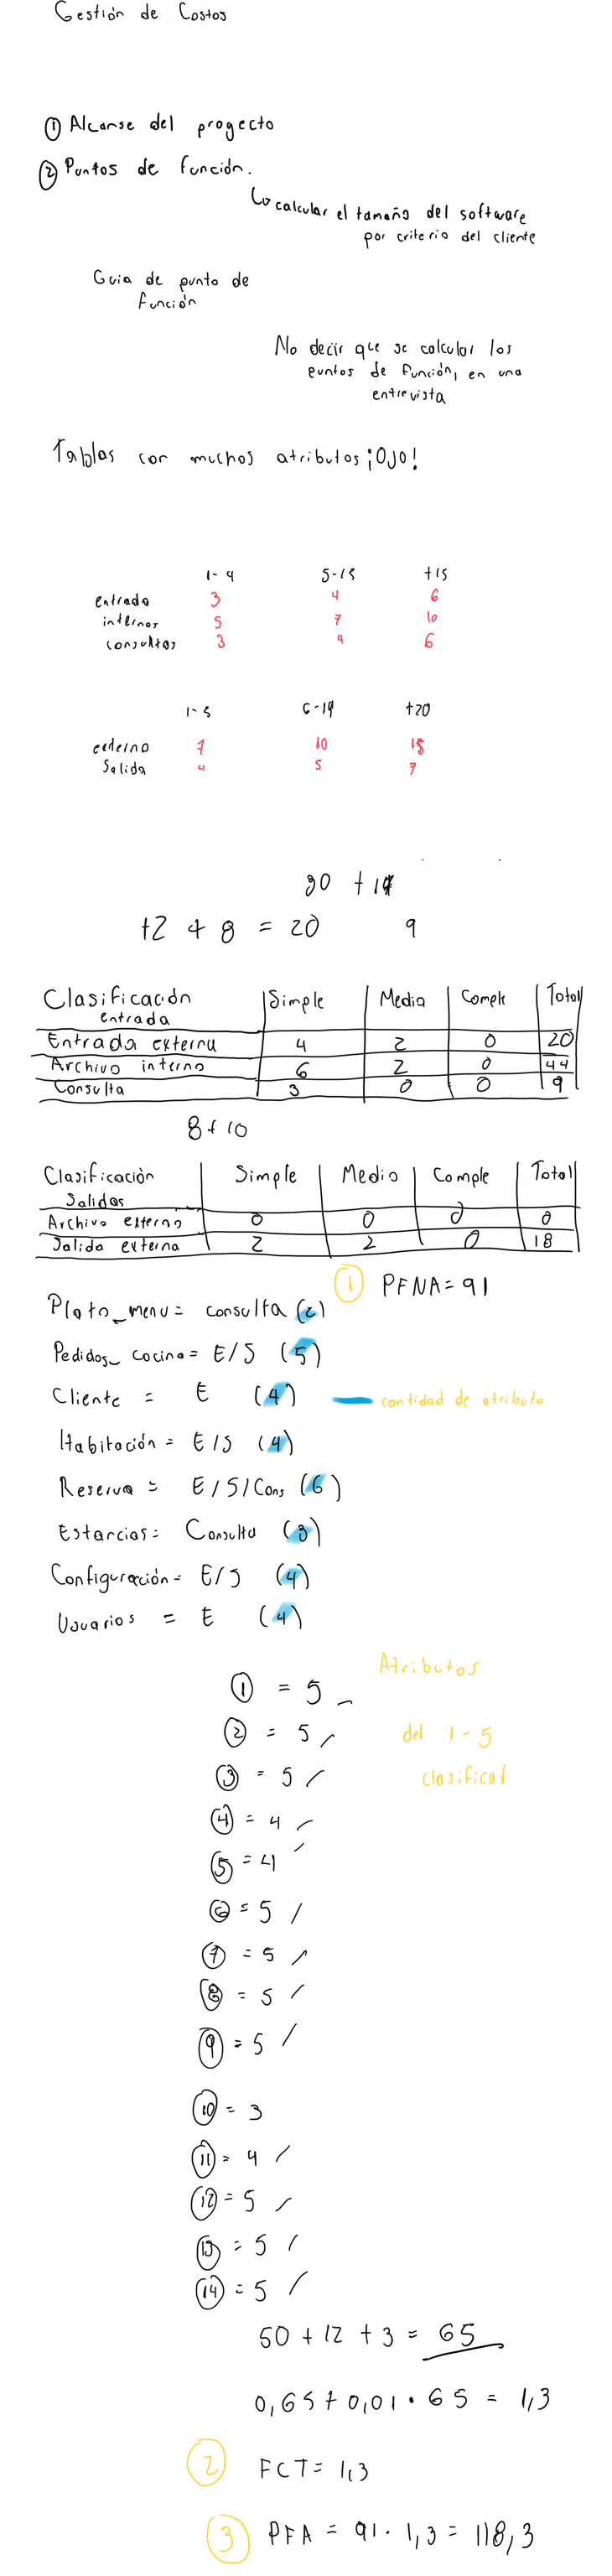 Gestión de Costos
① Alcanse del progecto
② Puntos de función.
↳ calcular el tamaño del software
por criterio del cliente
Guia de punto de
función
No decir que se calcular los
puntos de función, en una
entrevista
Tablas con muchos atributos ¡Ojo!
1-4 5-15 +15
entrada 3 4 6
internos 5 7 10
consultas 3 4 6
1-5 6-19 +20
externo 7 10 15
Salida 4 5 7
30 + 14
12 + 8 = 20 9
Clasificación Simple Media Comple Total
entrada
Entrada externa 4 2 0 20
Archivo interno 6 2 0 44
Consulta 3 0 0 9
8 + 10
Clasificación Simple Medio Comple Total
Salidas
Archivo externo 0 0 0 0
Salida externa 2 2 0 18
① PFNA = 91
Plato_menu = consulta
Pedidos_cocina = E/S (5)
Cliente = E (4) cantidad de atributo
Habitación = E/S (4)
Reserva = E/S/Cons (6)
Estancias = Consulta (3)
Configuración = E/S (4)
Usuarios = E (4)
Atributos
① = 5
② = 5 del 1-5
③ = 5 clasificar
④ = 4
⑤ = 4
⑥ = 5
⑦ = 5
⑧ = 5
⑨ = 5
⑩ = 3
⑪ = 4
⑫ = 5
⑬ = 5
⑭ = 5
50 + 12 + 3 = 65
0,65 + 0,01 · 65 = 1,3
② FCT = 1,3
③ PFA = 91 · 1,3 = 118,3